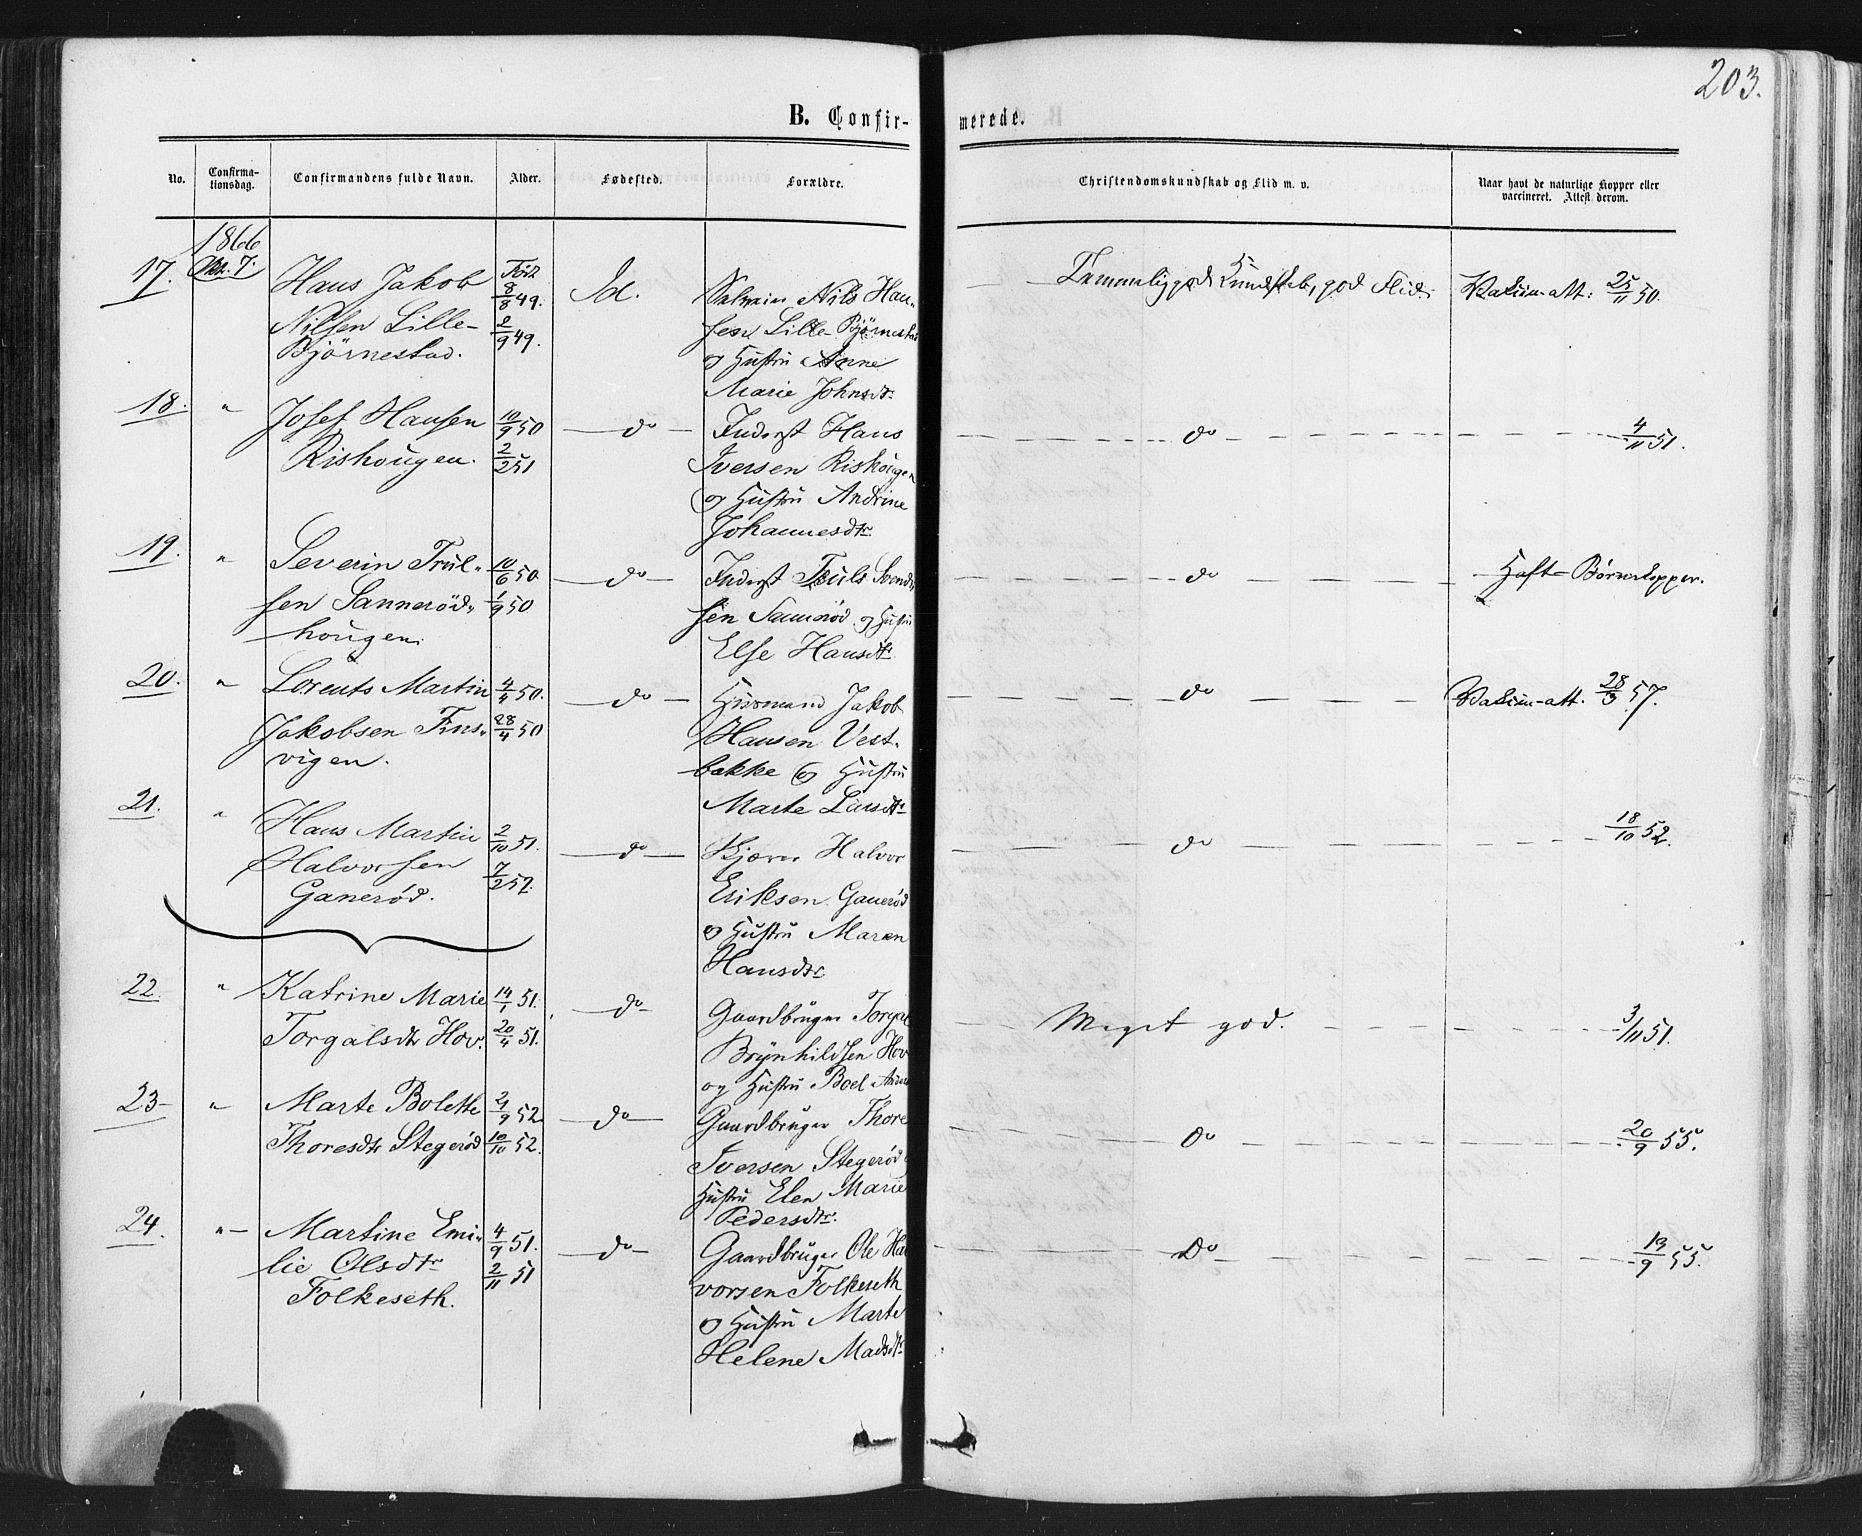 203.
B. Confir-
merede.
No.
Confirma-
tionsdag.
Confirmandens fulde Navn.
Alder.
Fødested.
Forældre.
Christendomskundskab og Flid m. v.
Naar havt de naturlige Kopper eller
vaccineret. Attest derom.
1866
17.
Okt. 7.
Hans Jakob
Nilsen Lille-
Bjørnestad.
Født
8/8 49.
2/9 49.
Id.
Nils Han-
sen Lille-Bjørnestad
og Hustru Anne
Marie Johnsdtr
Temmelig god Kundskab, god Flid.
Vaccin-att: 25/11 50.
18.
"
Josef Hansen
Rishougen.
10/9 50
2/2 51
do
Inderst Hans
Iversen Rishougen
og Hustru Andrine
Johannesdtr
do
4/11 51.
19.
"
Severin Trul-
sen Sannerød-
hougen.
10/6 50
1/9 50
do
Inderst Truls Svend-
sen Sannerød og Hustru
Else Hansdtr
do
Haft Børnekopper.
20.
"
Lorents Martin
Jakobsen Fins-
vigen.
4/4 50.
28/4 50
do
Husmand Jakob
Hansen Vest-
bække og Hustru
Marte Larsdtr
do
Vaccin-att. 28/3 57.
21.
"
Hans Martin
Halvorsen
Ganerød.
2/10 51.
7/2 52.
do
Halvor
Eriksen Ganerød
og Hustru Maren
Hansdtr
do
18/10 52.
22.
"
Katrine Marie
Torgalsdtr Hov.
14/1 51.
20/4 51.
do
Gaardbruger Torgal
Brynhildsen Hov
og Hustru Boel
Meget god.
3/11 51.
23
"
Marte Bolette
Thoresdtr Stegerød
2/9 52
10/10 52.
do
Gaardbruger Thore
Iversen Stegerød
Hustru Elen Marie
Pedersdtr.
do
20/9 55.
24.
"
Martine Emi-
lie Olsdtr
Folkeseth.
4/9 51.
2/11 51
do
Gaardbruger Ole Hal
vorsen Folkeseth
og Hustru Marte
Helene Madsdtr
Do
13/9 55.